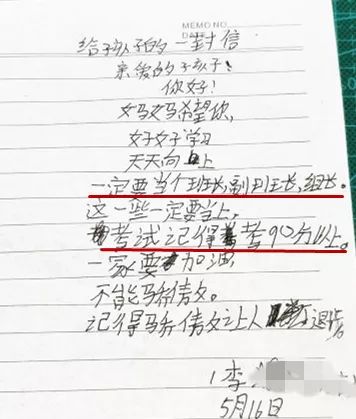 MEMO NO.
DATE
给孩子的一封信
亲爱的孩子！
你好！
妈妈希望你，
好好学习
天天向上
一定要当个班长，副班长，组长。
这一些一定要当上，
考试记得考90分以上。
一家要加油
不能
记得 让人 退
李
5月16日